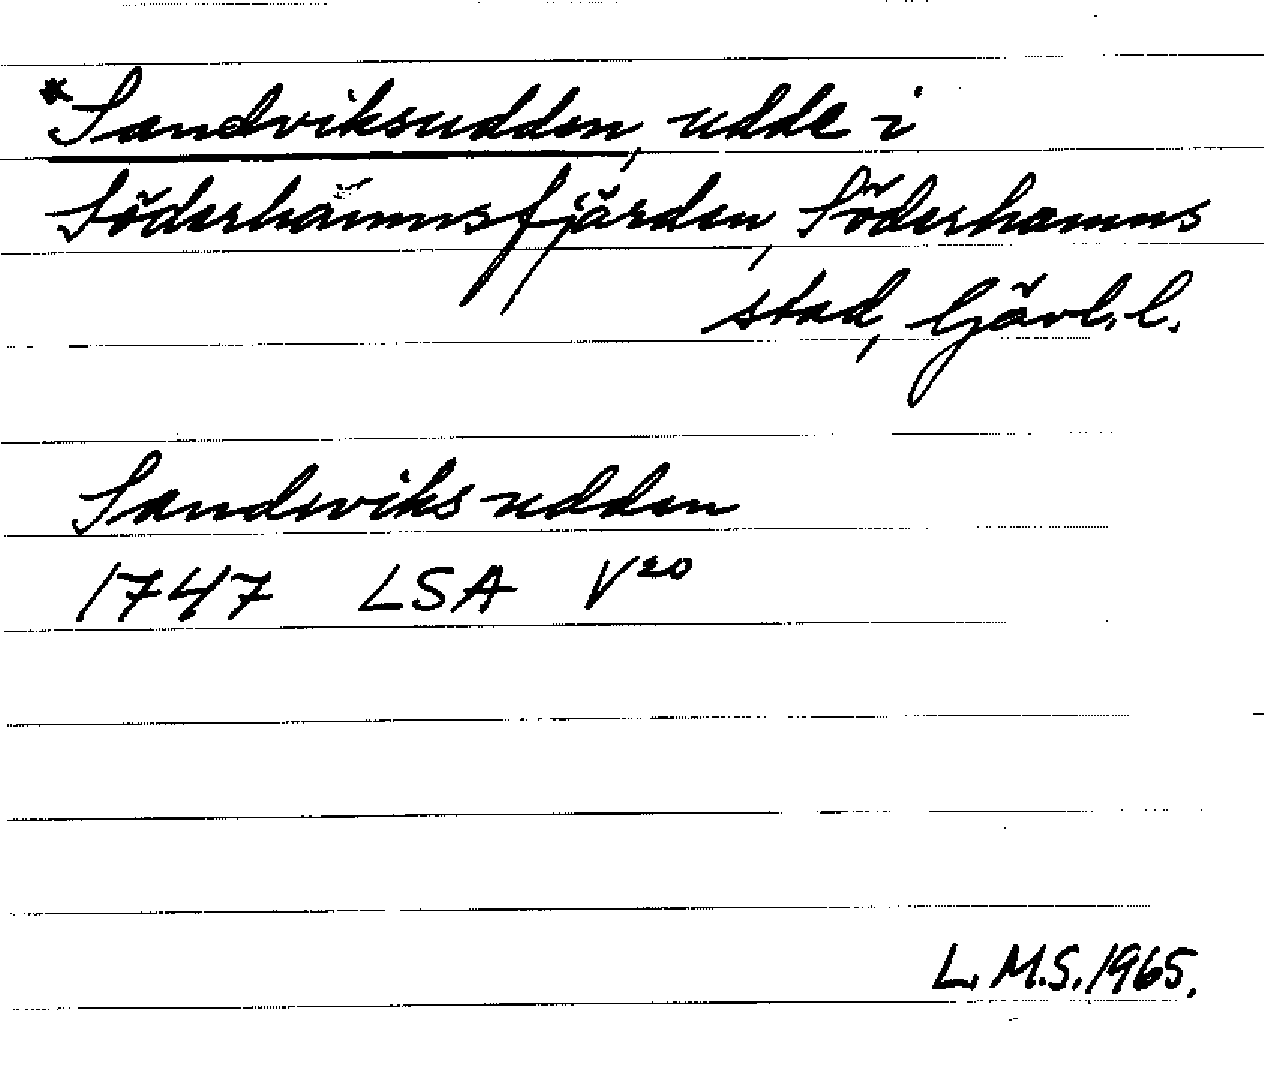 *Sandviksudden, udde i
Söderhamnsfjärden, Söderhamns
stad, Gävl. l.
Sandwiks udden
1747 LSA V20
L.M.S. 1965.